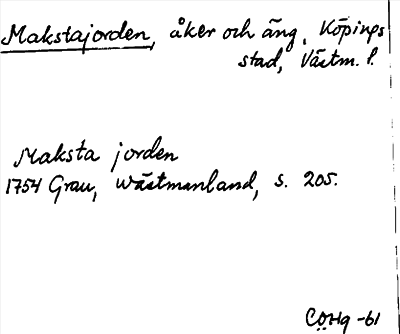 Makstajorden, åker och äng, Köpings
stad, Västm. l.
Maksta jorden
1754 Grau, Wästmanland, s. 205.
CÖHg -61